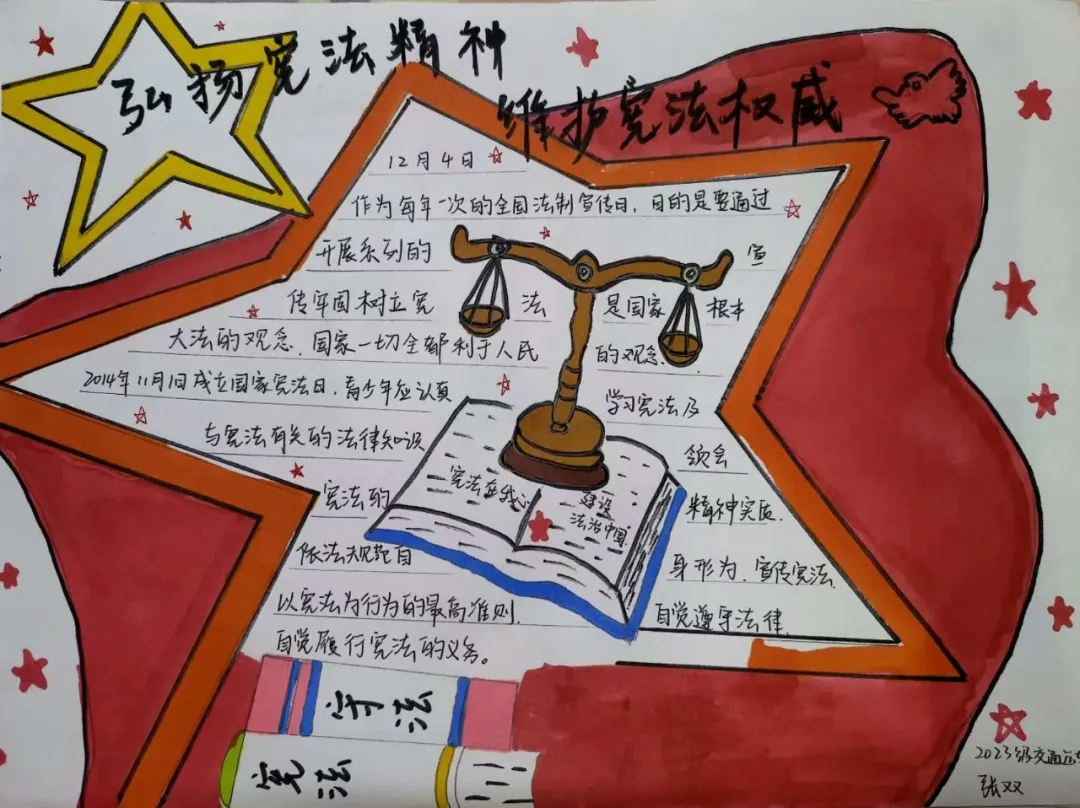 弘扬宪法精神
维护宪法权威
12月4日
作为每年一次的全国法制宣传日，目的是要通过
开展系列的 宣
传牢固树立宪 法 是国家 根本
大法的观念，国家一切全都利于人民 的观念.
2014年11月1日成立国家宪法日，青少年应认真 学习宪法及
与宪法有关的法律知识 领会
宪法的 精神实质.
依法规范自 身形为.宣传宪法.
以宪法为行为的最高准则. 自觉遵守法律.
自觉履行宪法的义务。
宪法在我心
建设
法治中国
守法
宪法
2023级交通运
张双